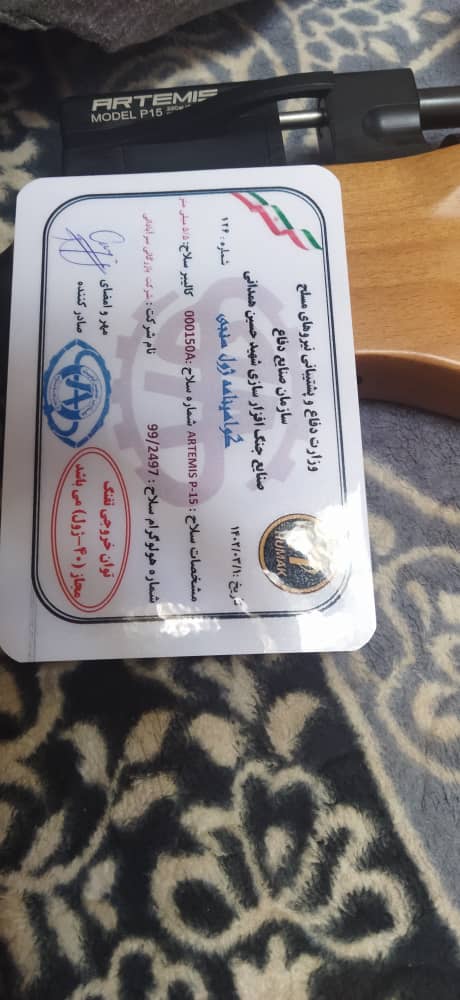 ARTEMIS
MODEL P15
وزارت دفاع و پشتیبانی نیروهای مسلح
سازمان صنایع دفاع
صنایع جنگ افزار سازی شهید حسین همدانی
شماره: ۱۲۴
گواهینامه ژول سنجی
تاریخ: ۱۴۰۲/۰۲/۱
HUMAK
مشخصات سلاح: ARTEMIS P-15 شماره سلاح: 000150A کالیبر سلاح: ۵/۵ میلی متر
شماره هولوگرام سلاح: 99/2497 نام شرکت: شرکت بازرگانی
مهر و امضای
صادر کننده
توان خروجی تفنگ
مجاز (۴۰-ژول) می باشد